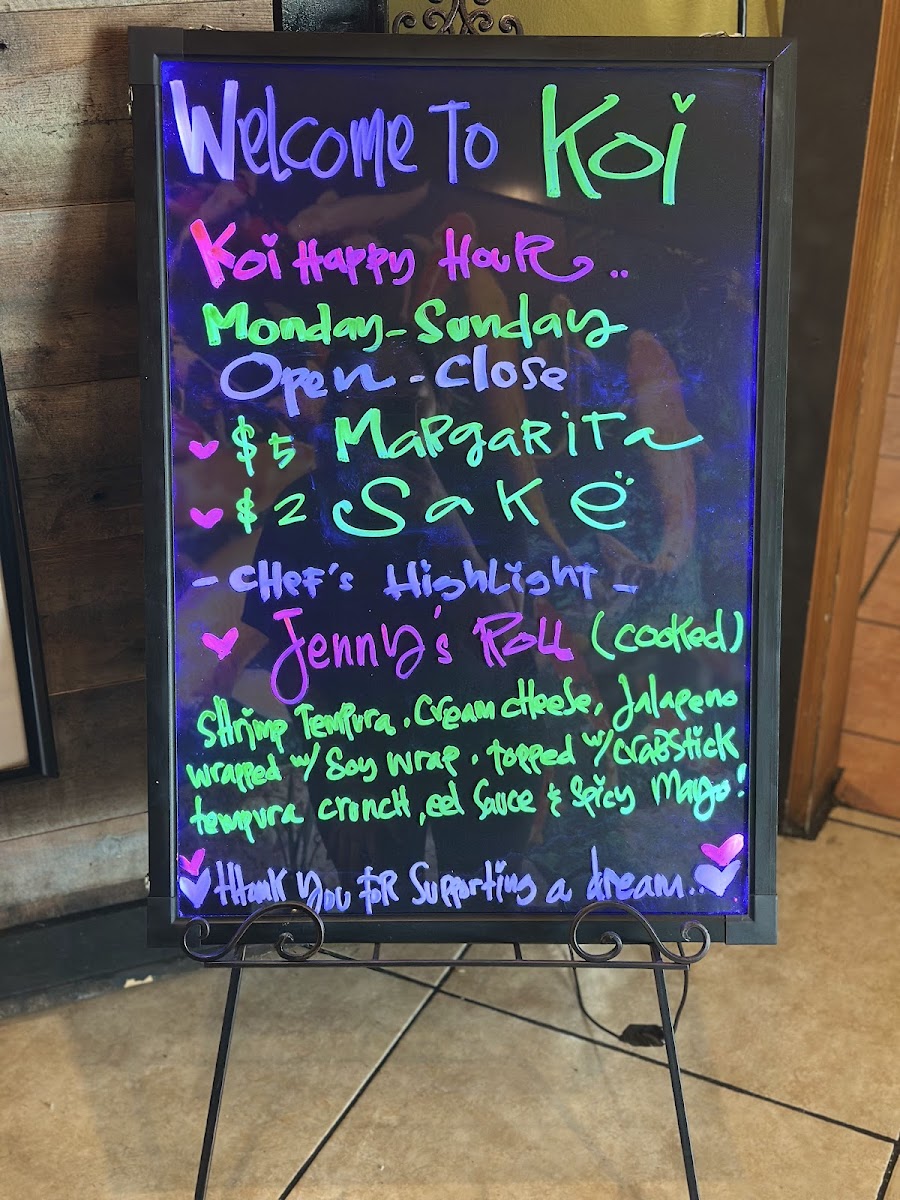 Welcome To Koi
Koi Happy Hour..
Monday-Sunday
Open - Close
$5 Margarita
$2 Sake
- Chef's Highlight -
Jenny's Roll (cooked)
Shrimp Tempura, Cream cheese, Jalapeno
wrapped w/ Soy wrap, topped w/ crabstick
tempura crunch, eel sauce & spicy mayo!
thank you for supporting a dream..